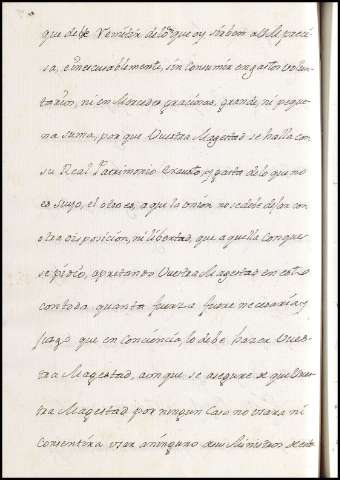 que debe Remitir de lo que oy se ha de m a V.M. preci
sa, e inescusablemente, sin consumir en gastos volun
tarios, ni en Mercedes graciosas, grande, ni peque
na suma, por que Vuestra Magestad se halla con
su Real Patrimonio exausto, y gasta de lo que no
es suyo, el otro es, a que la union no se debe dejar con
otra disposicion, ni libertad, que aquella con que
se pidio, apretando Vuestra Magestad en esto
con toda quanta fuerza fuere necesaria, y
juzgo que en conciencia, lo debe hazer Vues
tra Magestad, aunque se asegure de que Vues
tra Magestad por ningun Caso no usara ni
Consentira usar a ninguno de sus Ministros de esta